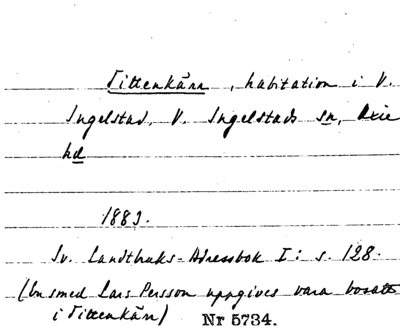 Tittenkärr, habitation i V.
Ingelstad, V. Ingelstads sn, Oxie
hd
1883.
Sv. Landtbruks-Adressbok I: s. 128.
(Busmed Lars Persson uppgives vara bosatt
i Tittenkärr) Nr 5734.